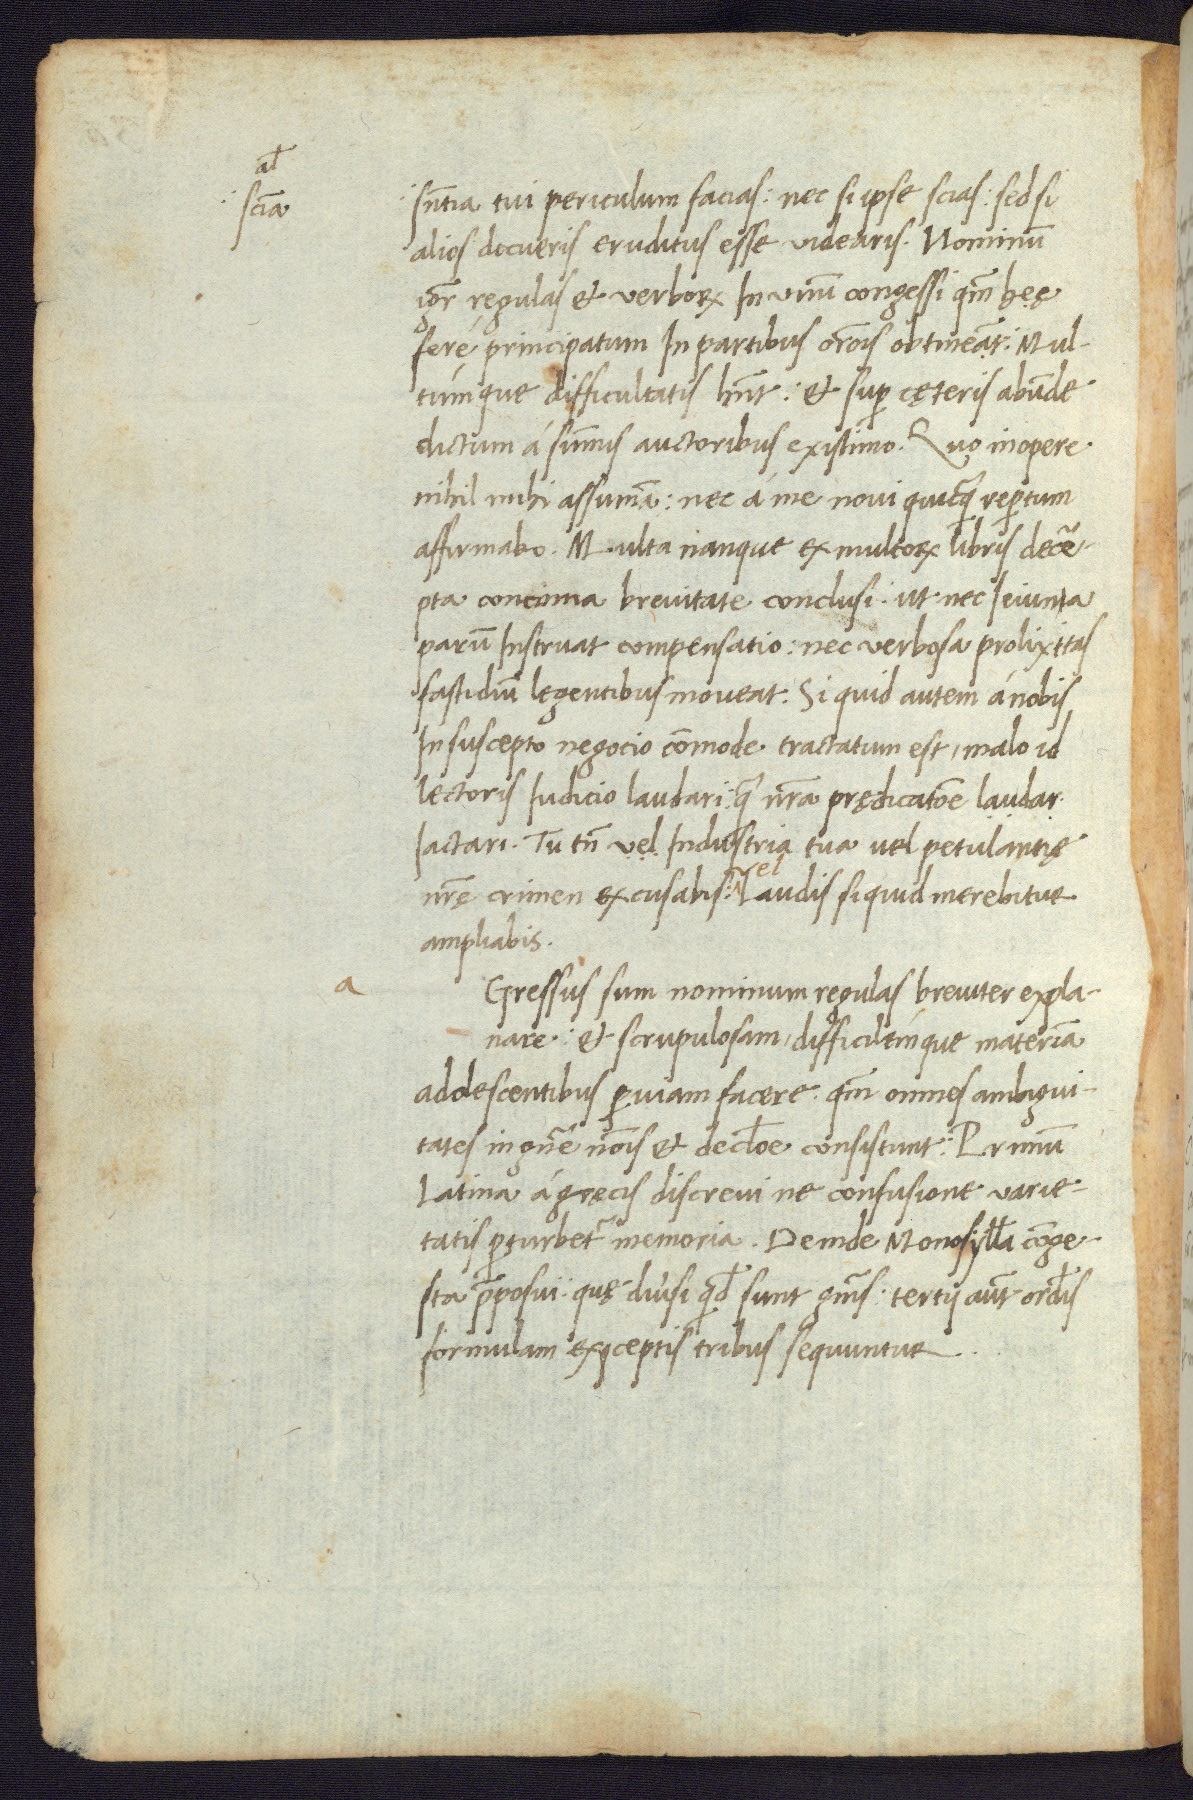 al̄
scīa
sn̄tia tui periculum facias: nec si ipse scias: sed si
alios docueris eruditus esse videaris. Nominū
igr̄ regulas et verboꝝ In vnū congessi qm̄ hęę
ferè principatum In partibus or̄ois obtineāt: Mul-
túmque difficultatis hn̄t: et suꝑ cęteris abūde
dictum á sūmis auctoribus existimo. Quo in opere
nihil mihi assumā: nec á me noui quicq̄ reꝑtum
affirmabo. Multa nanque ex multoꝝ libris decē-
pta concinna breuitate conclusi. ut nec Ieiuna
parū Instruat compensatio: nec verbosa prolixitas
fastidiū legentibus moueat. Si quid autem á nobis
In suscepto negocio cōmode tractatum est, malo id
lectoris Iudicio laudari: q̄ nr̄a prędicatōe laudar
Iactari. Tu tn̄ vel Industria tua uel petulantię
nr̄ę crimen excusabis: vel Laudis si quid merebitur
ampliabis.
a
Gressus sum nominum regulas breuiter expla-
nare: et scrupulosam, difficilémque materiā
adolescentibus ꝑuiam facere. qm̄ omnes ambigui-
tates in gn̄e nōis et decl̄oe consistunt: Primū
Latina á gręcis discreui ne confusione varie-
tatis ꝑturbet᷑ memoria. Deinde Monosyll̄a cōge-
sta p̄posui: quę diu᷑si qd̄ sunt gn̄is: tertij aūt ord̄is
formulam exceptis tribus sequuntur.